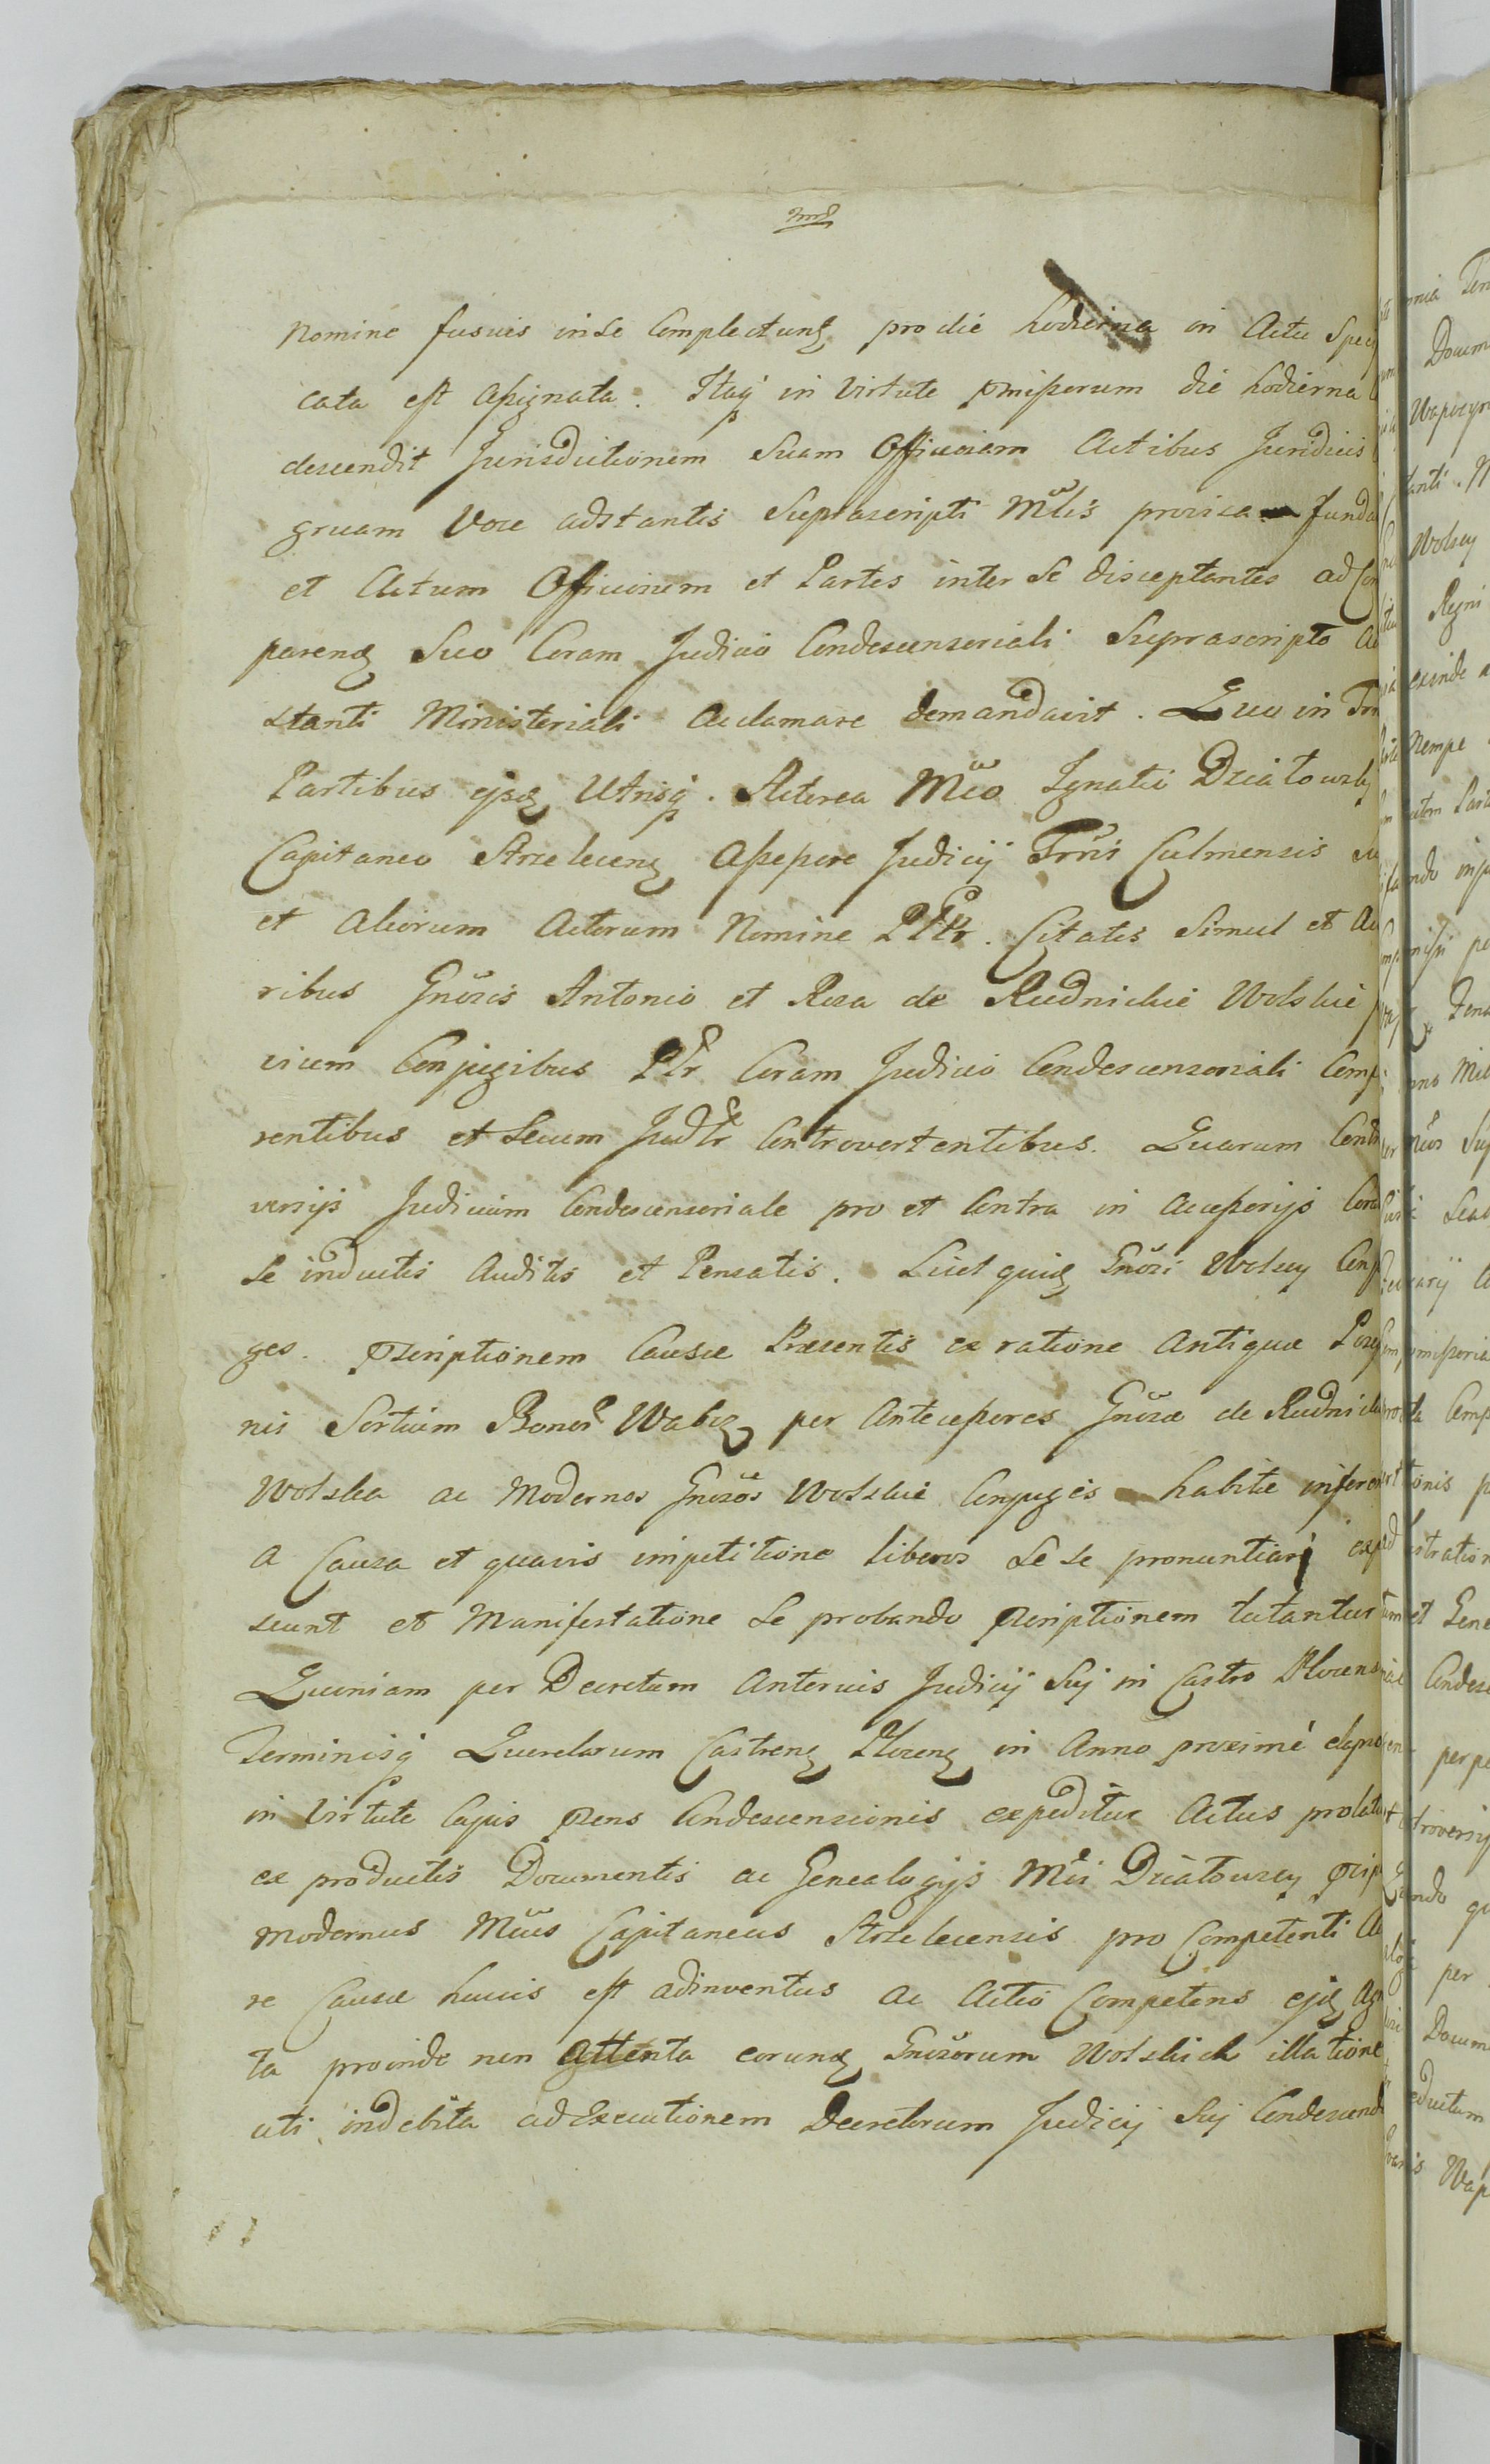 nomine fusius in se Complectens pro die hodierna in Actu Speci
cata est Assignata. Itaq in Virtute pmissorum die hodierna
descendit Jurisdictionem Suam Officiosam Actibus Juridicis
gruam Voce adstantis Suprascripti Mlis provisa funda
et Actum Officiosum et Partes inter Se disceptantes ad Com
parend Suo Coram Judicio Condescensoriali Suprascripto a
stanti Ministeriali acclamare demandavit. Quo in Trm
Partibus ejsd Utrisq. Actorea Mco Ignatio Działowski
Capitaneo Strzelecens Assessore Judicij Trris Culmensis su
et Aliorum Actorum Nomine PPtr. Citatis Simul et Ac
ribus Gnosis Antonio et Roza de Rudnickie Wolskie
vicem Conjugibus Ptr Coram Judicio Condescensoriali Comp
rentibus et Secum Judtr Controvertentibus. Quarum Contr
versijs Judicium Condescensoriale pro et Contra in accessorijs Cora
Se inductis Auditis et Pensatis. Licet quid Gnosi Wolscy Conj
ges. pscriptionem Causæ Præsentis ex ratione Antiquæ Possessi
nis Sortium Bonor Wabcz per Antecessores Gnosæ de Rudnickie
Wolska ac Modernos Gnosos Wolskie Conjuges habitæ inferen
a Causa et quavis impetitione liberos Se se pronuntiari exp
scunt et Manifestatione Se probando pscriptionem tutantur
Quoniam per Decretum Anterius Judicij Sui in Castro Plocens
Terminisq Querelarum Castrens Plocens in Anno proximé elapso
in Virtute Cujus psens Condescensionis expeditur Actus prolatu
ex productis Documentis ac Genealogijs Mci Działowscy psip
modernus Mcus Capitaneus Strzelecensis pro Competenti Ac
re Causæ hujus est adinventus ac Actio Competens ejsd Ag
ta proinde non attenta eorund Gnosorum Wolskich illatione
uti indebita ad Executionem Decretorum Judicij Sui Condescend